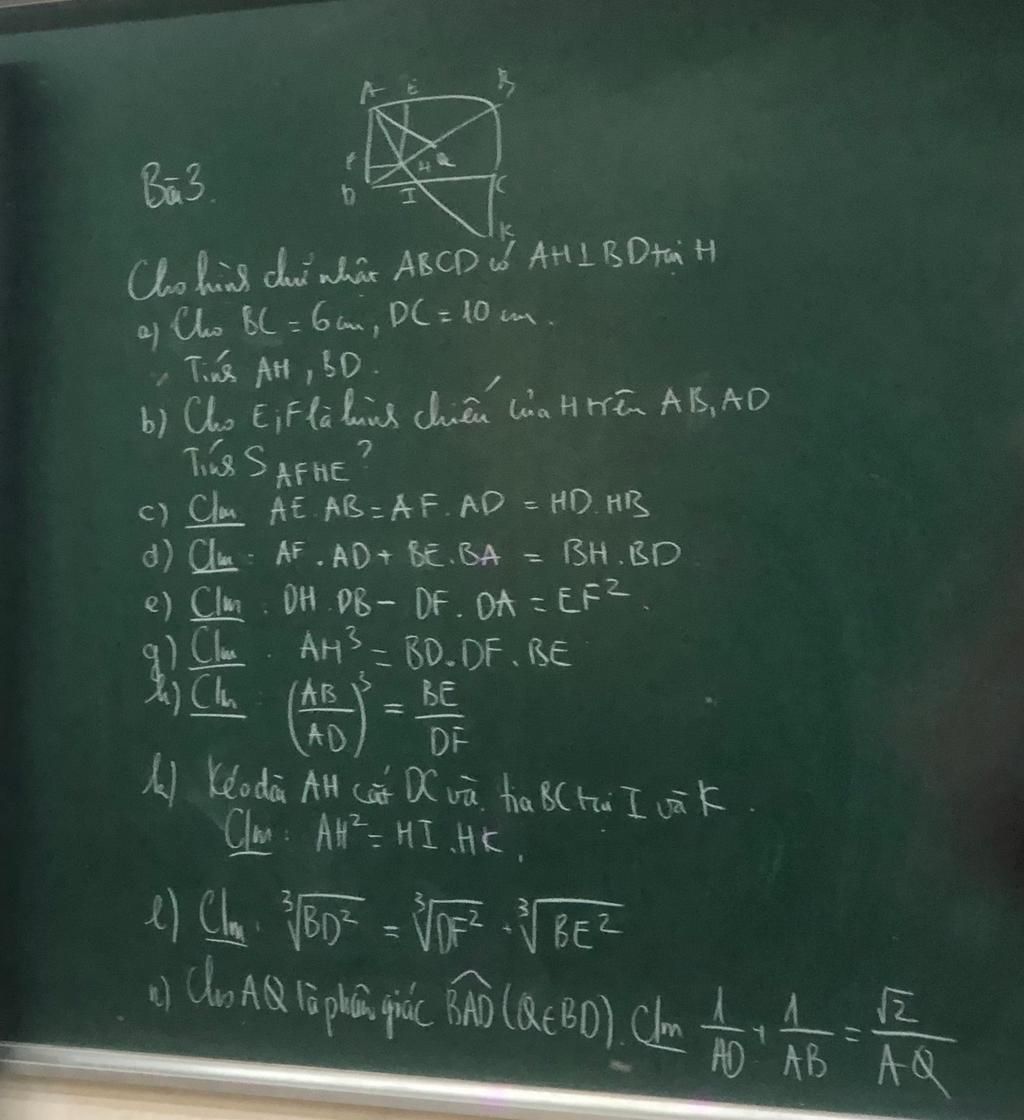 A E B
F H Q
D I C
K
Bài 3.
Cho hình chữ nhật ABCD có AH⊥BD tại H
a) Cho BC = 6 cm, DC = 10 cm.
Tính AH, BD.
b) Cho E, F là hình chiếu của H trên AB, AD
Tính S AFHE ?
c) Clm AE.AB = AF.AD = HD.HB
d) Clm: AF.AD + BE.BA = BH.BD
e) Clm: DH.DB - DF.DA = EF².
g) Clm. AH³ = BD.DF.BE
h) Clm. (AB/AD)³ = BE/DF
k) Kéo dài AH cắt DC và tia BC tại I và K.
Clm: AH² = HI.HK.
l) Clm. ∛BD² = ∛DF² + ∛BE²
n) Cho AQ là phân giác BAD̂ (Q∈BD). Clm 1/AD + 1/AB = √2/AQ